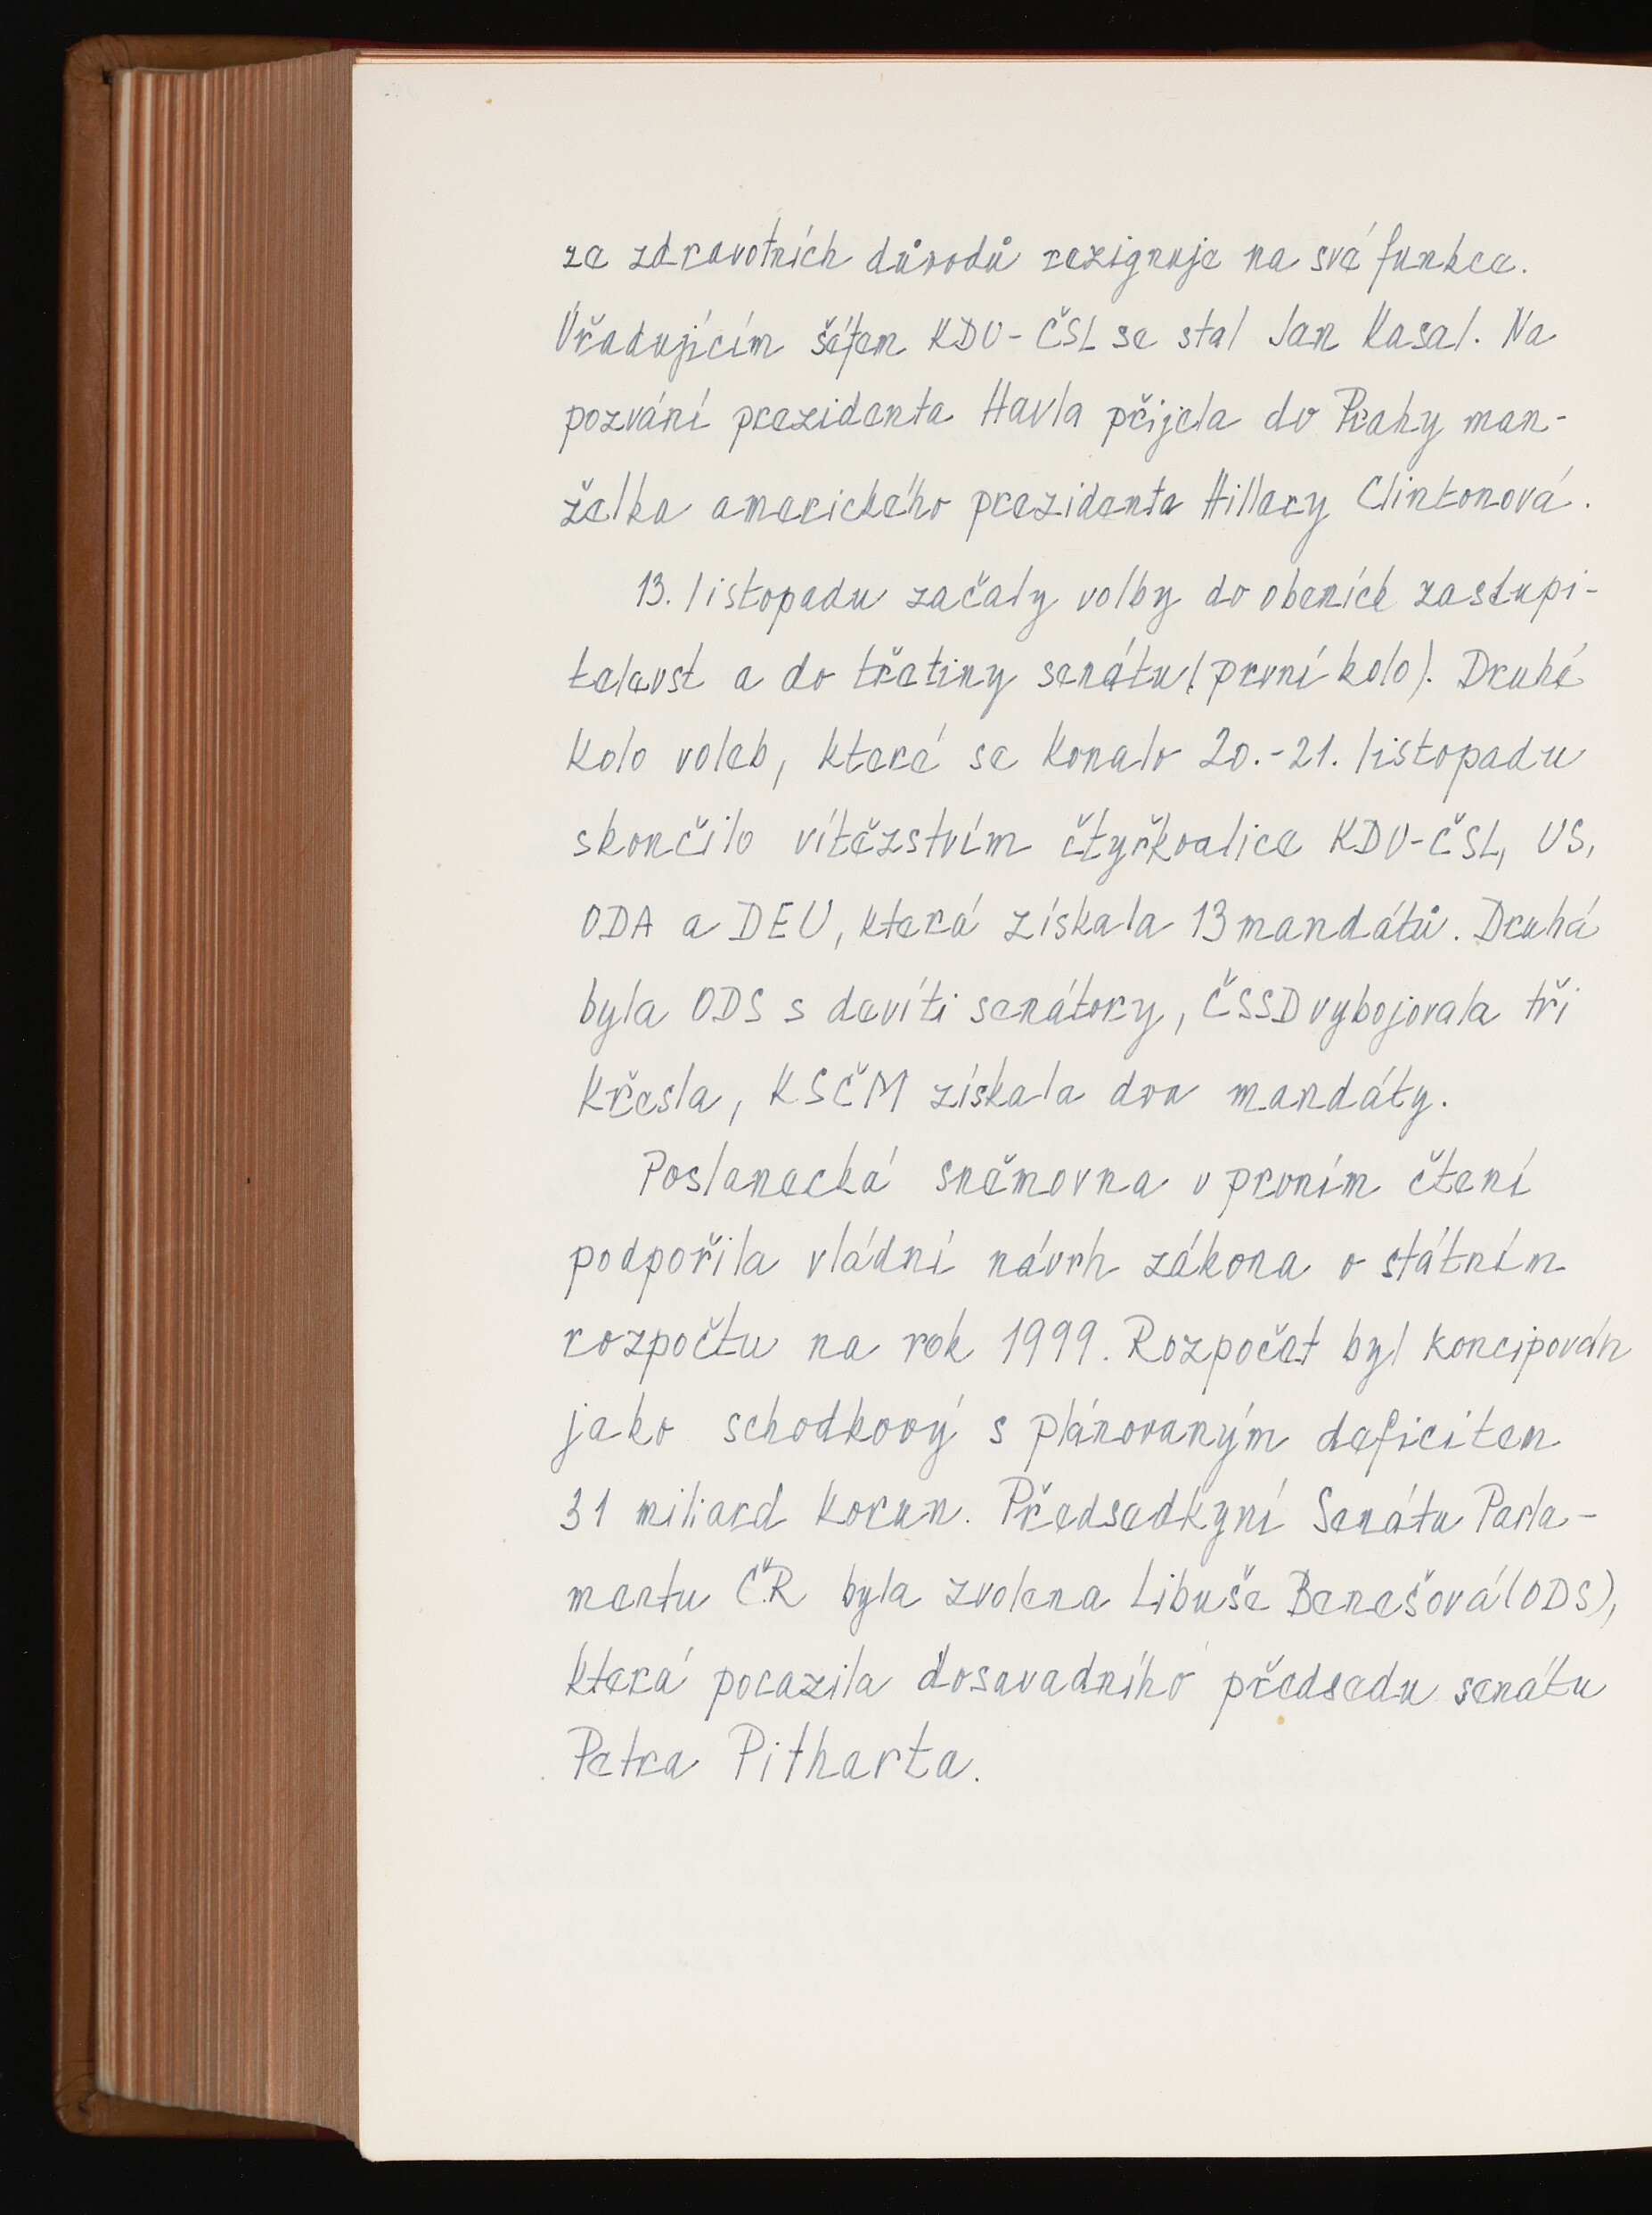 ze zdravotních důvodů rezignuje na své funkce.
Úřadujícím šéfem KDU-ČSL se stal Jan Kasal. Na
pozvání prezidenta Havla přijela do Prahy man-
želka amerického prezidenta Hillary Clintonová.
13. listopadu začaly volby do obeních zastupi-
televst a do třetiny senátu (první kolo). Druhé
kolo voleb, které se konalo 20.-21. listopadu
skončilo vítězstvím čtyřkoalice KDU-ČSL, US,
ODA a DEU, která získala 13 mandátů. Druhá
byla ODS s devíti senátory, ČSSD vybojovala tři
křesla, KSČM získala dva mandáty.
Poslanecká sněmovna v prvním čtení
podpořila vládní návrh zákona o státním
rozpočtu na rok 1999. Rozpočet byl koncipován
jako schodkový s plánovaným deficitem
31 miliard korun. Předsedkyní Senátu Parla-
mentu ČR byla zvolena Libuše Benešová (ODS),
která porazila dosavadního předsedu senátu
Petra Pitharta.